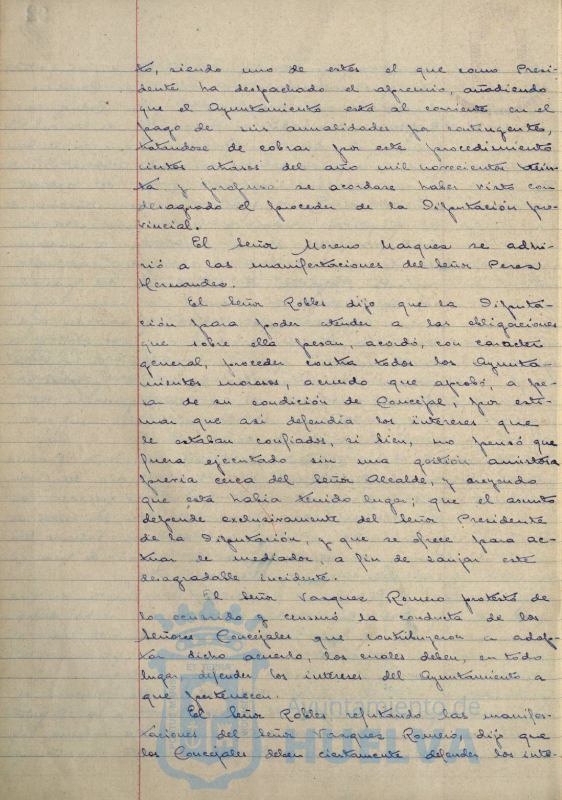 to, siendo uno de estos el que como Presi-
dente ha despachado el apremio, añadiendo
que el Ayuntamiento está al corriente en el
pago de sus anualidades por contingente,
tratándose de cobrar por este procedimiento
ciertos atrasos del año mil novecientos trein-
ta y propuso se acordase haber visto con
desagrado el proceder de la Diputación pro-
vincial.
El Señor Moreno Marquez se adhi-
rió a las manifestaciones del Señor Perez
Hernandez.
El Señor Robles dijo que la Diputa-
ción para poder atender a las obligaciones
que sobre ella pesan, acordó, con caracter
general, proceder contra todos los Ayunta-
mientos morosos, acuerdo que aprobó, a pe-
sar de su condición de Concejal, por esti-
mar que así defendía los intereses que
le estaban confiados, si bien, no pensó que
fuera ejecutado sin una gestión amistosa
previa cerca del Señor Alcalde, y creyendo
que esta había tenido lugar; que el asunto
depende exclusivamente del Señor Presidente
de la Diputación, y que se ofrece para ac-
tuar de mediador, a fin de zanjar este
desagradable incidente.
El Señor Vazquez Romero protestó de
lo ocurrido y censuró la conducta de los
Señores Concejales que contribuyeron a adop-
tar dicho acuerdo, los cuales deben, en todo
lugar, defender los intereses del Ayuntamiento a
que pertenecen.
El Señor Robles, refutando las manifes-
taciones del Señor Vazquez Romero, dijo que
los Concejales deben ciertamente defender los inte-
Ayuntamiento de
HUELVA